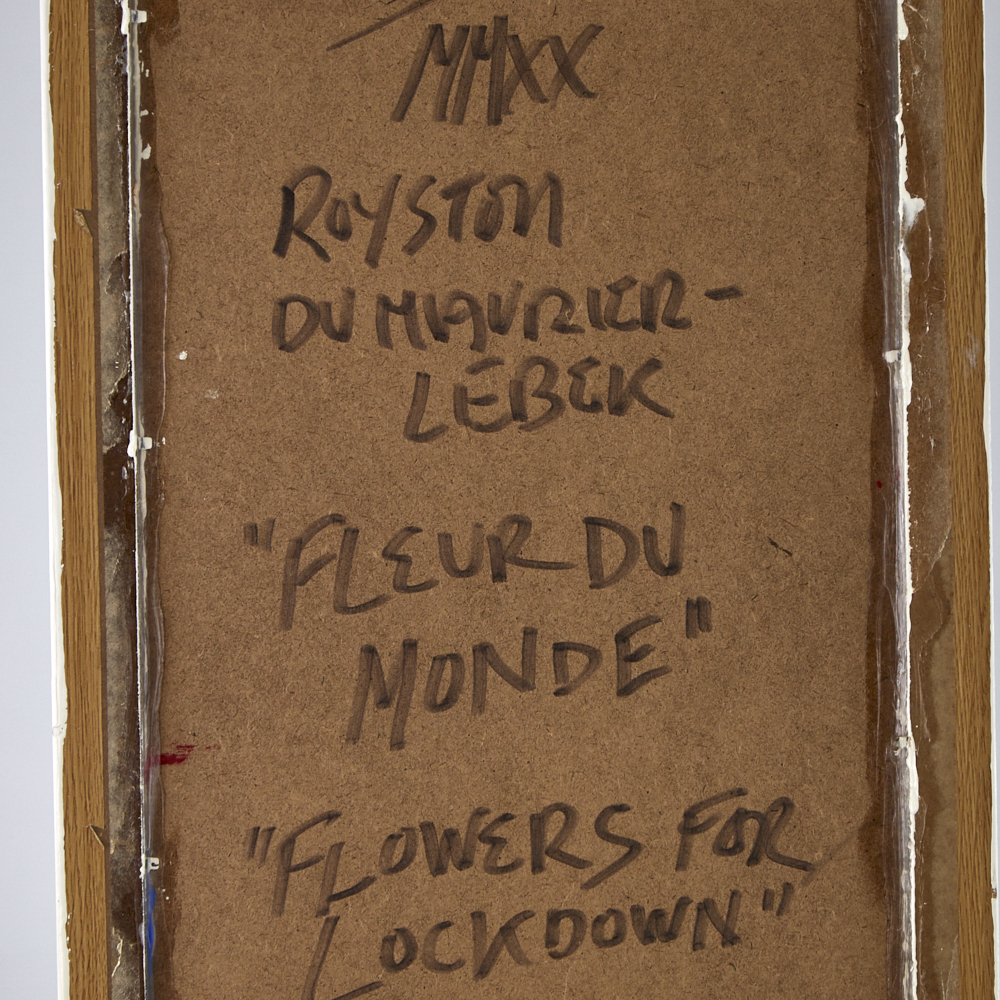 MMXX
ROYSTON
DU MAURIER-
LEBEK
"FLEUR DU
MONDE"
"FLOWERS FOR
LOCKDOWN"